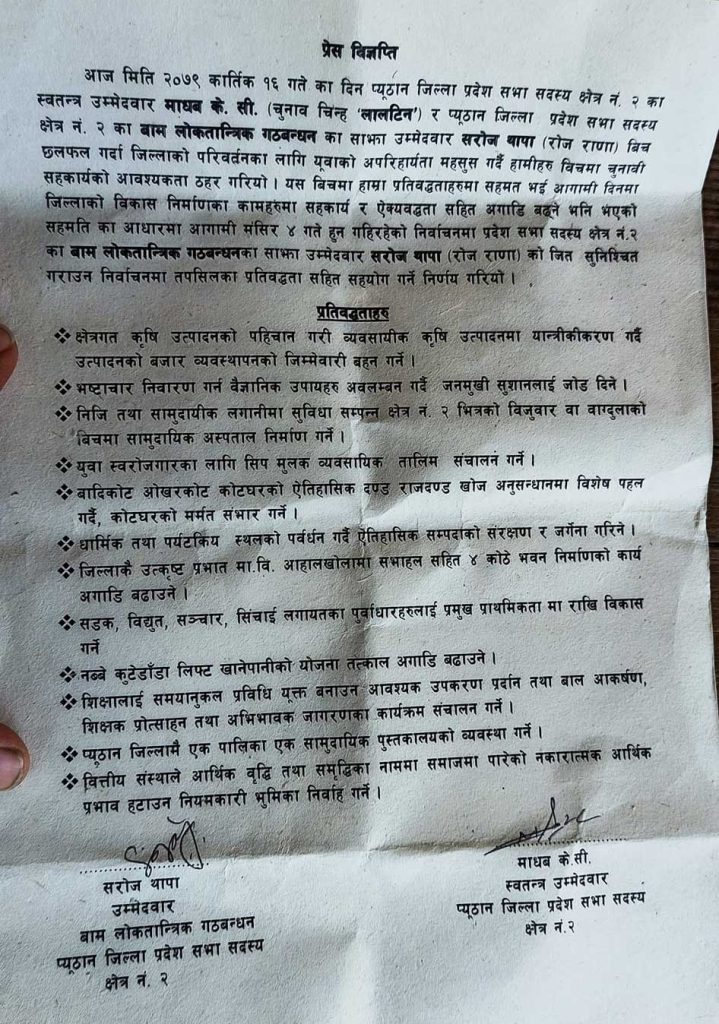 प्रेस विज्ञप्ति
आज मिति २०७९ कार्तिक १६ गते का दिन प्यूठान जिल्ला प्रदेश सभा सदस्य क्षेत्र नं. २ का
स्वतन्त्र उम्मेदवार माधब के. सी. (चुनाव चिन्ह 'लालटिन') र प्यूठान जिल्ला प्रदेश सभा सदस्य
क्षेत्र नं. २ का बाम लोकतान्त्रिक गठबन्धन का साझा उम्मेदवार सरोज थापा (रोज राणा) बिच
छलफल गर्दा जिल्लाको परिवर्तनका लागि यूवाको अपरिहार्यता महसुस गर्दै हामीहरु विचमा चुनावी
सहकार्यको आवश्यकता ठहर गरियो । यस बिचमा हाम्रा प्रतिवद्धताहरुमा सहमत भई आगामी दिनमा
जिल्लाको विकास निर्माणका कामहरुमा सहकार्य र ऐक्यवद्धता सहित अगाडि बढ्ने भनि भएको
सहमति का आधारमा आगामी मंसिर ४ गते हुन गहिरहेको निर्वाचनमा प्रदेश सभा सदस्य क्षेत्र नं.२
का बाम लोकतान्त्रिक गठबन्धनका साझा उम्मेदवार सरोज थापा (रोज राणा) को जित सुनिश्चित
गराउन निर्वाचनमा तपसिलका प्रतिवद्धता सहित सहयोग गर्ने निर्णय गरियो ।
प्रतिवद्धताहरु
❖ क्षेत्रगत कृषि उत्पादनको पहिचान गरी व्यवसायीक कृषि उत्पादनमा यान्त्रीकीकरण गर्दै
उत्पादनको बजार व्यवस्थापनको जिम्मेवारी बहन गर्ने ।
❖ भष्टाचार निवारण गर्न वैज्ञानिक उपायहरु अवलम्बन गर्दै जनमुखी सुशानलाई जोड दिने ।
❖ निजि तथा सामुदायीक लगानीमा सुविधा सम्पन्न क्षेत्र नं. २ भित्रको विजुवार वा वाग्दुलाको
बिचमा सामुदायिक अस्पताल निर्माण गर्ने ।
❖ युवा स्वरोजगारका लागि सिप मुलक व्यवसायिक तालिम संचालन गर्ने ।
❖ बादिकोट ओखरकोट कोटघरको ऐतिहासिक दण्ड राजदण्ड खोज अनुसन्धानमा विशेष पहल
गर्दै, कोटघरको मर्मत संभार गर्ने ।
❖ धार्मिक तथा पर्यटकिय स्थलको पर्वर्धन गर्दै ऐतिहासिक सम्पदाको संरक्षण र जर्गेना गरिने ।
❖ जिल्लाकै उत्कृष्ट प्रभात मा.वि. आहालखोलामा सभाहल सहित ४ कोठे भवन निर्माणको कार्य
अगाडि बढाउने ।
❖ सडक, विद्युत, सञ्चार, सिंचाई लगायतका पुर्वाधारहरुलाई प्रमुख प्राथमिकता मा राखि विकास
गर्ने
❖ नब्बे कुटेडाँडा लिफ्ट खानेपानीको योजना तत्काल अगाडि बढाउने ।
❖ शिक्षालाई समयानुकल प्रविधि यूक्त बनाउन आवश्यक उपकरण प्रर्दान तथा बाल आकर्षण,
शिक्षक प्रोत्साहन तथा अभिभावक जागरणका कार्यक्रम संचालन गर्ने ।
❖ प्यूठान जिल्लामै एक पालिका एक सामुदायिक पुस्तकालयको व्यवस्था गर्ने ।
❖ वित्तीय संस्थाले आर्थिक वृद्धि तथा समृद्धिका नाममा समाजमा पारेको नकारात्मक आर्थिक
प्रभाव हटाउन नियमकारी भुमिका निर्वाह गर्ने ।
सरोज थापा
उम्मेदवार
बाम लोकतान्त्रिक गठबन्धन
प्यूठान जिल्ला प्रदेश सभा सदस्य
क्षेत्र नं. २
माधब के.सी.
स्वतन्त्र उम्मेदवार
प्यूठान जिल्ला प्रदेश सभा सदस्य
क्षेत्र नं.२